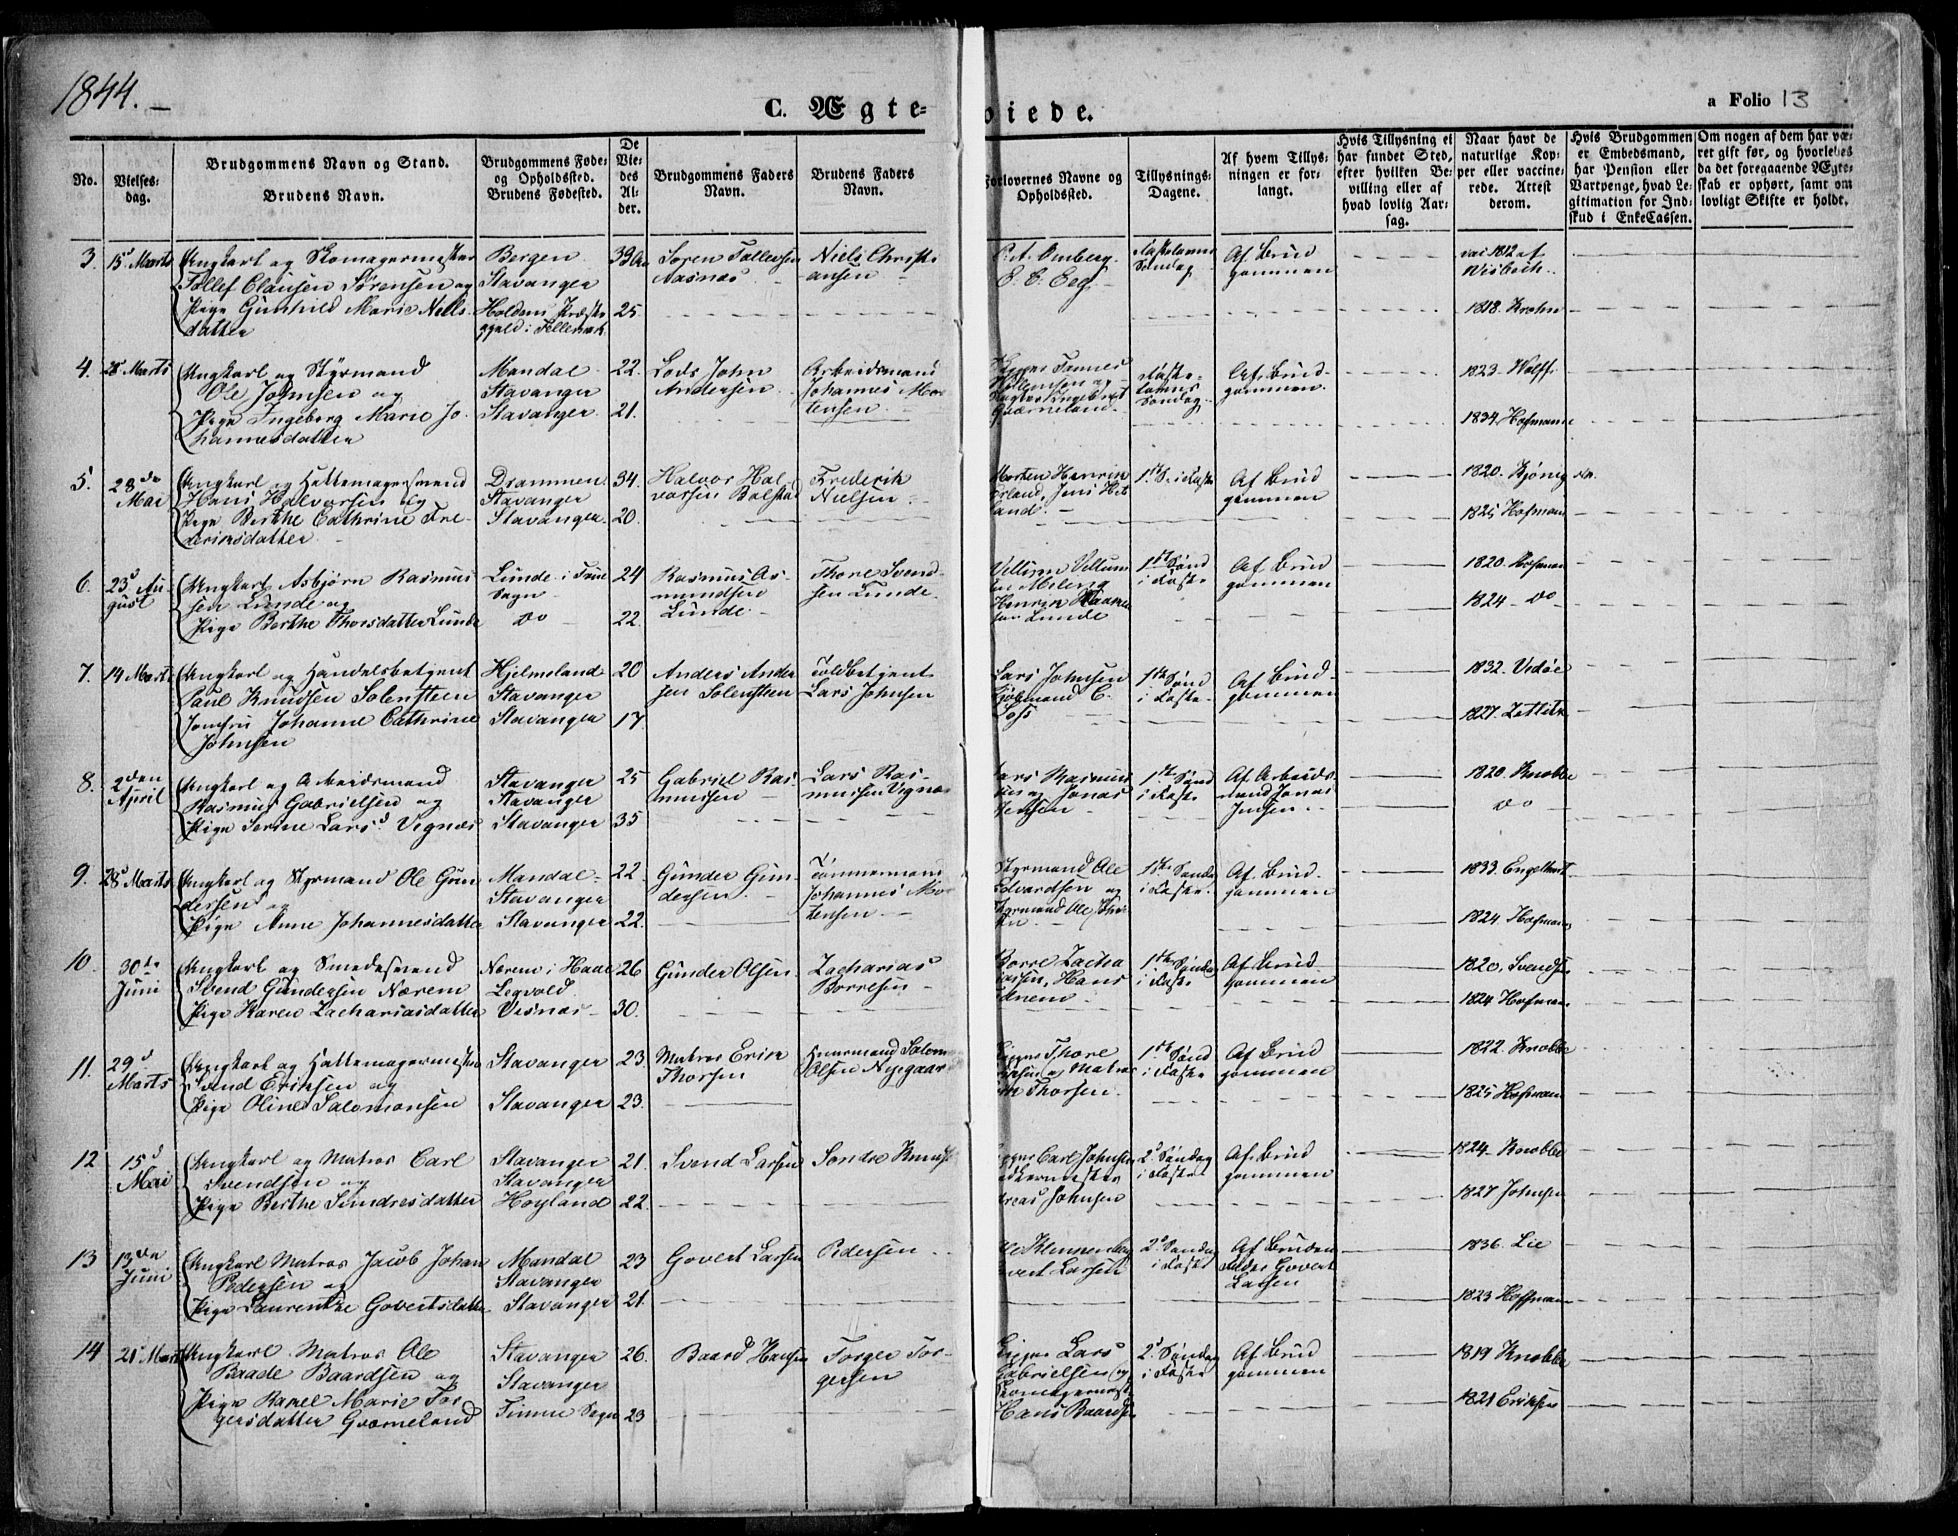 1844.
C. Ægte=
viede.
a Folio 13
No.
Vielses=
dag.
Brudgommens Navn og Stand.
Brudens Navn.
Brudgommens Føde=
og Opholdssted.
Brudens Fødested.
De
Vie=
des
Al=
der.
Brudgommens Faders
Navn.
Brudens Faders
Navn.
Forlovernes Navne og
Opholdssted.
Tillysnings=
Dagene.
Af hvem Tillys=
ningen er for=
langt.
Hvis Tillysning ei
har fundet Sted,
efter hvilken Be=
villing eller af
hvad lovlig Aar=
sag.
Naar havt de
naturlige Kop=
per eller vaccine=
rede. Attest
derom.
Hvis Brudgommen
er Embedsmand,
har Pension eller
Vartpenge, hvad Le=
gitimation for Ind=
skud i EnkeCassen.
Om nogen af dem har væ=
ret gift før, og hvorledes
da det foregaaende Ægte=
skab er ophørt, samt om
lovligt Skifte er holdt.
3. 15d Marts
Ungkarl og Skomagermester
Tollef Clausen Sørensen og
Pige Gunhild Marie Niels
datter
Bergen
Stavanger
Holdens Præste
gjeld i Tellemark
39 Aar
25
Søren Tollefsen
Aasnæs
Niels Christi
ansen
P. A. Omberg
E. E. Eeg
Fastelavns
Søndag
Af Brud
gommen
vac 1812 af
Wisbech
1818. Krohn
4. 28d Marts
Ungkarl og Styrmand
Ole Johnsen og
Pige Ingeborg Marie Jo
hannesdatter
Mandal
Stavanger
Stavanger
22.
21.
Lods John
Andersen
Arbeidsmand
Johannes Mor
tensen
Qværneland
Faste-
lavns
Søndag
Af Brud-
gommen
1823. Wolff
1834. Hofmann
5. 28de
Mai
Ungkarl og Hattemagersvend
Hans Halvorsen og
Pige Berthe Cathrine Fre-
deriksdatter
Drammen
Stavanger
Stavanger
34.
20.
Halvor Hal
vorsen Bolstad
Frederik
Nielsen
Morten Henrik
land, Jens Het
land
1ste S. i Faste
Af Brud
gommen
1820. Kjønig
1825 Hofman
6. 23d Au-
gust
Ungkarl Asbjørn Rasmus
sen Lunde og
Pige Berthe Thorsdatter Lunde
Lunde i Fin
Sogn
do
24
22.
Rasmus As-
mundsen
Lunde
Thore Svend-
sen Lunde
Villum Villum
sen Meling
Henrik
sen Lunde
1ste Sønd
i Faste
Af Brud
gommen
1820. Hofman
1824 - do
7. 14 Marts
Ungkarl og Handelsbetjent
Paul Knudsen Solensteen
Jomfru Johanne Cathrine
Johnsen
Hjelmeland
Stavanger
Stavanger
20
17.
Anders Ander
sen Solensteen
Toldbetjent
Lars Johnsen
Lars Johnsen
Kjøbmand C.
Loss
1ste Sønd
i Faste
Af Brud-
gommen
1832. Vedøe
1827. Zettitz
8. 2den
April
Ungkarl og Arbeidsmand
Rasmus Gabrielsen og
Pige Serine Larsd Vignæs
Stavanger
Stavanger
Stavanger
25
35
Gabriel Ras-
mussen
Lars Ras-
mussen Vignæs
Lars Rasmus
sen og Jonas
Jensen
1ste Sønd
i Faste
Af Arbeids
mand Jonas
Jensen
1820 Knobbe
do
9. 28d Marts
Ungkarl og Styrmand Ole Gun
dersen og
Pige Anne Johannesdatter
Mandal
Stavanger
Stavanger
22.
22.
Gunder Gun
dersen
Tømmermand
Johannes Mor
tensen
Styrmand Ole
Edvardsen og
Styrmand Ole
1ste Søndag
i Faste
Af Brud-
gommen
1833. Engelhart
1824. Hofmann
10. 30te
Juni
Ungkarl og Smedesvend
Svend Gundersen Nærem
Pige Karen Zachariasdatter
Nærem i Haae
Legvold
Visnæs
26
30.
Gunder Olsen
Zacharias
Borresen
Borre Zacha
riassen, Hans
1ste Søndag
i Faste
Af Brud
gommen
1820. Svendsen
1824 Hofman
11. 29d
Marts
Ungkarl og Hattemagermester
Svend Eriksen og
Pige Oline Salomonsen
Stavanger
Stavanger
23.
23.
Matros Erik
Thorsen
Salomon
Olsen Nygaard
Thore
og Matros
Erik Thorsen
1ste Sønd
i Faste
Af Brud
gommen
1822. Knobbe
1825 Hofman
12 15d
Mai
Ungkarl og Matros Carl
Svendsen og
Pige Berthe Sundresdatter
Stavanger
Stavanger
Høyland
21.
22.
Svend Larsen
Søndre Knuds
Carl Johnsen
Johnsen
2d Søndag
i Faste
Af Brud
gommen
1824 Knobbe
1827 Johnsen
13 13den
Juni
Ungkarl Matros Jacob Johan
Pedersen og
Pige Laurentze Govertsdatter
Mandal
Stavanger
Stavanger
23
21.
Govert Larsen
Pedersen
Ole
Govert Larsen
2d Søndag
i Faste
Af Bruden
Fader Govert
Larsen
1836. Lie
1823 Hoffman
14 21d Marts
Ungkarl Matros Ole
Baade Baardsen og
Pige Rakel Marie Tor
gersdatter Qværneland
Stavanger
Stavanger
Timme Sogn
26.
23
Baard Hansen
Torger Tor-
gersen
Lars
Gabrielsen og
Skomagermester
Hans Baardsen
2d Søndag
i Faste
Af Brud
gommen
1819 Knobbe
1821 Eriksen